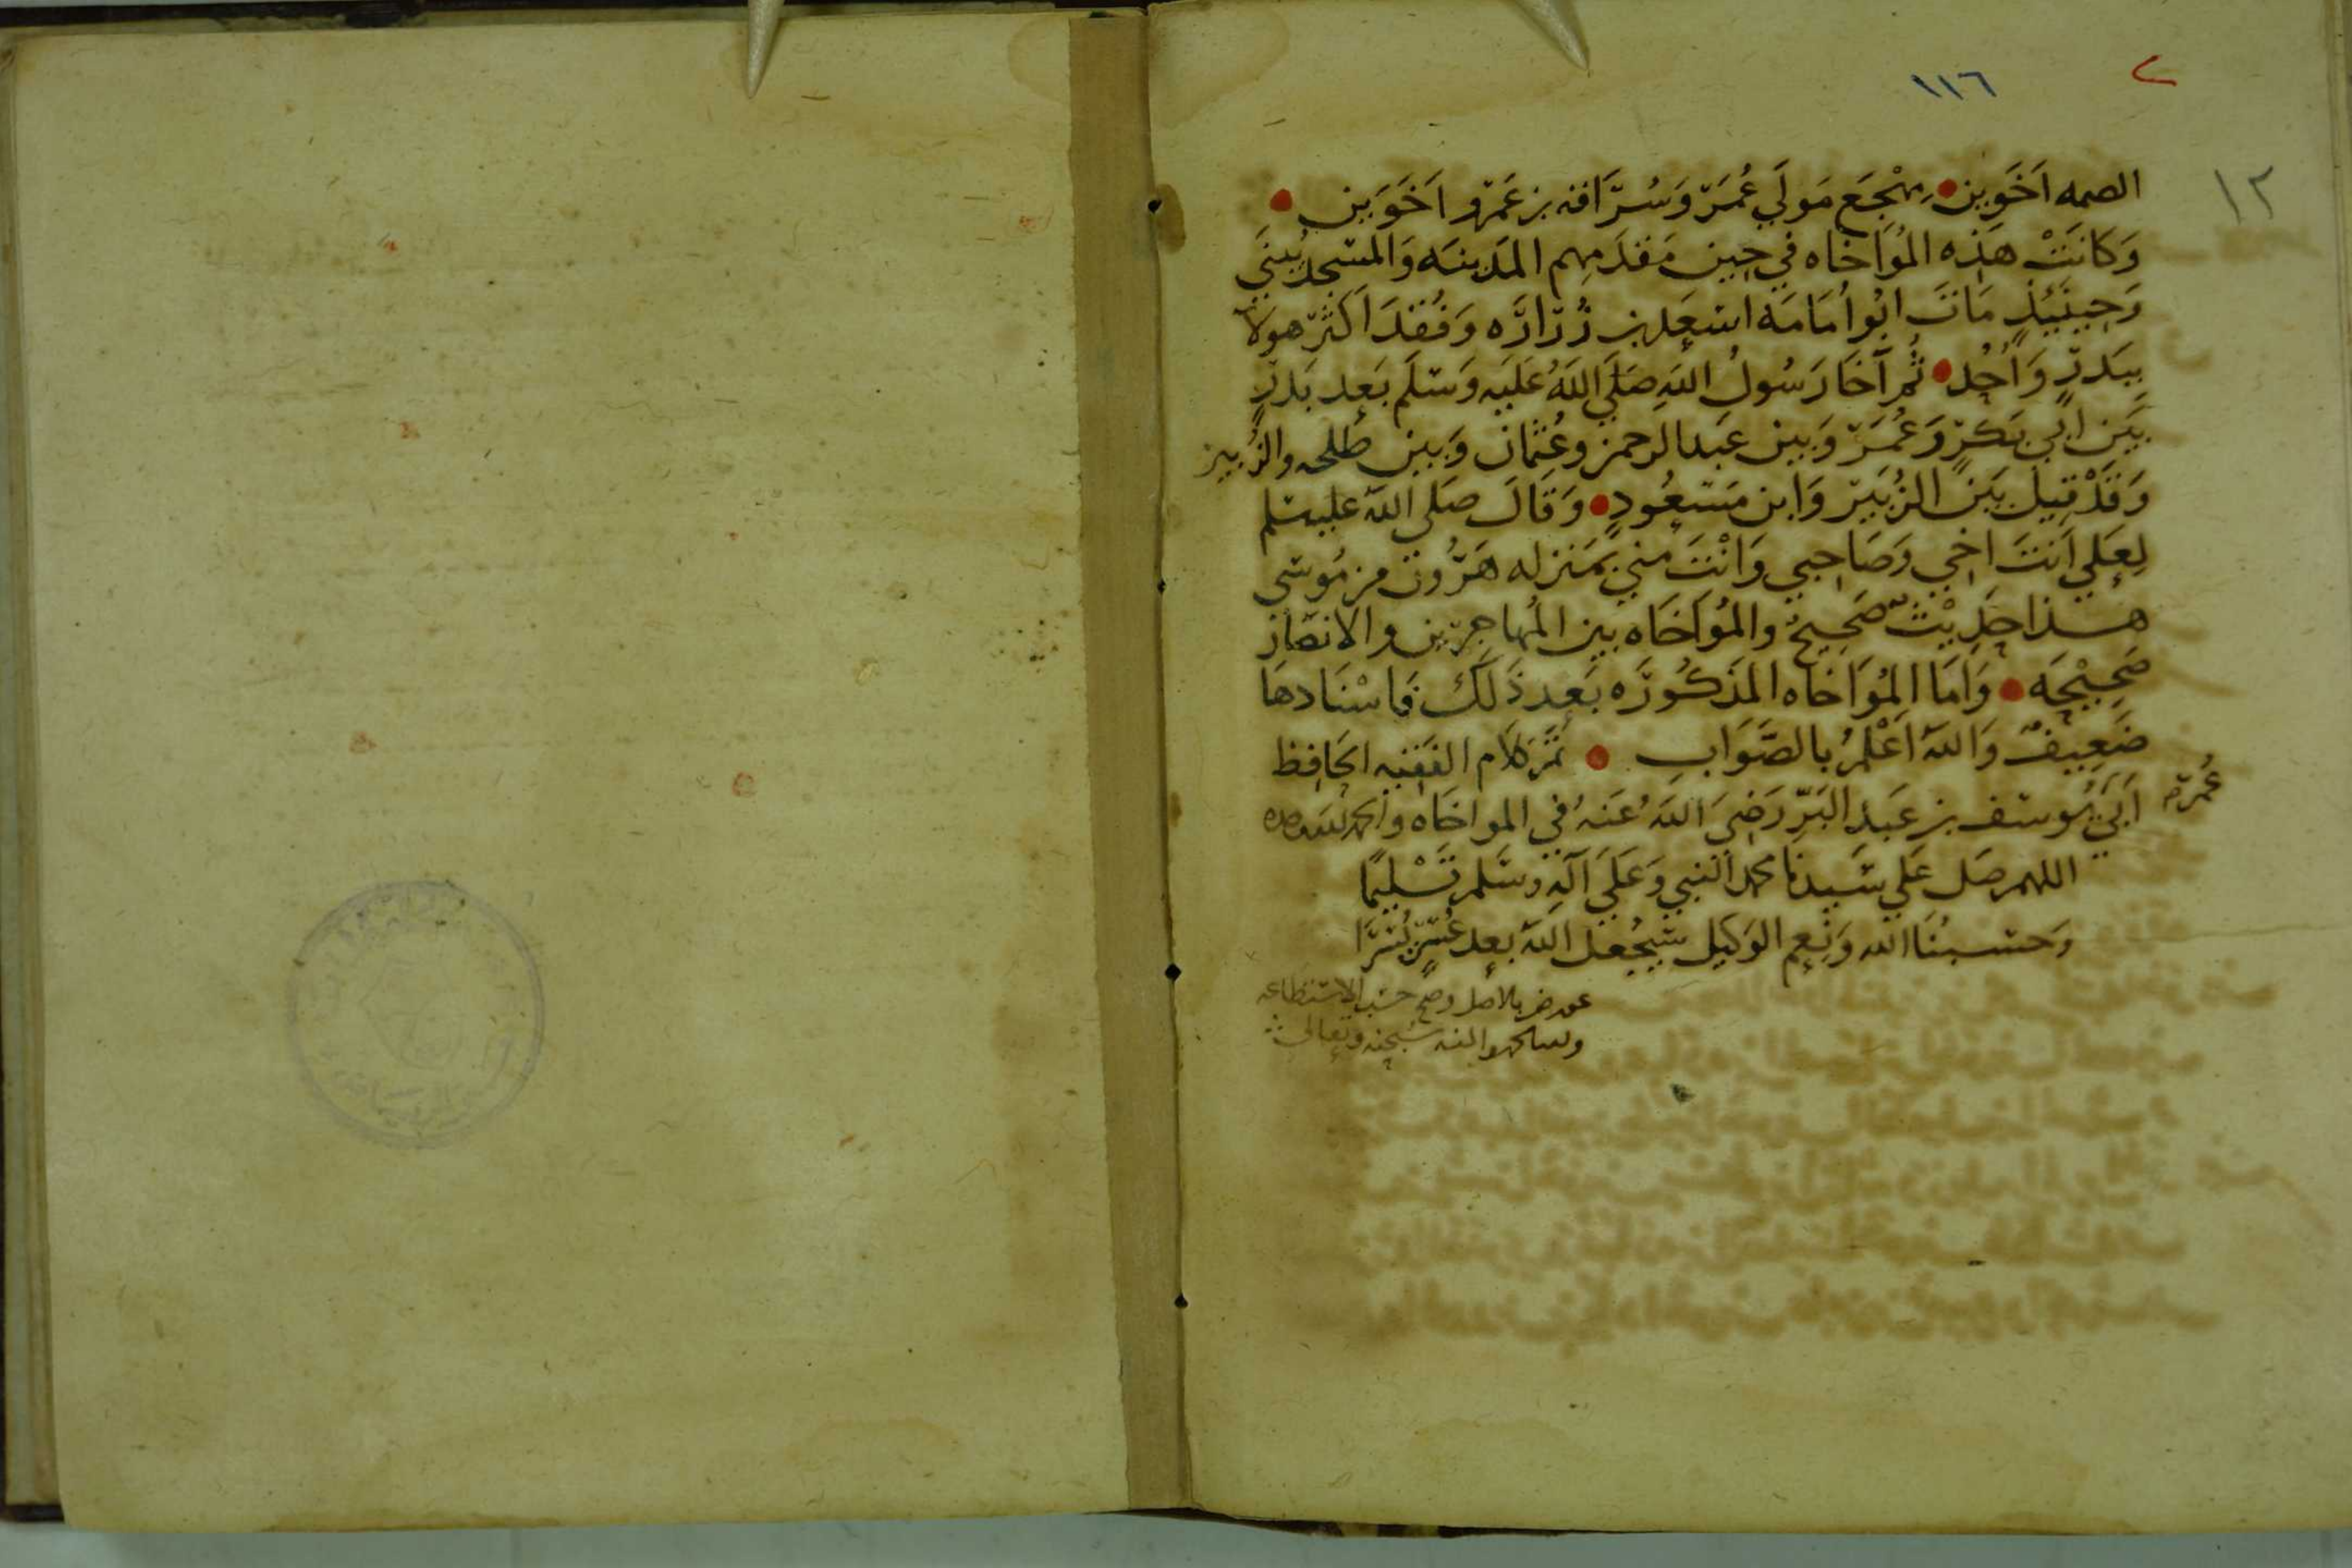 ١١٦
١٢
الصمه اَخَوَين • مِهْجَع مَولَي عُمَرَ وَسُرَاقه بن عَمرو اَخَوَين •
وَكَانَتْ هَذِه المُوَاخَاه في حِين مَقدَمِهم المَدينَه وَالمَسْجد يُبنَي
وَحِينَيِذٍ مَاتَ ابُو اُمَامَه اسْعَد بن زُرَارَه وَفُقدَ اَكثَر هولا
بِبَدرٍ وَاُحُد • ثُم آخَا رَسُولُ اللهِ صَلَّي اللهُ عَلَيه وَسَلَم بَعد بَدرٍ
بَيَن ابي بَكرٍ وَعُمَرَ وَبين عَبد الرحمن وعُثمَان وَبَين طلحه والزُبير
وَقَدْ قيلَ بَينَ الزُبَير وَابن مَسعُودٍ • وَقَالَ صَلي الله عليه سلم
لِعَلي اَنتَ اخي وَصَاحِبي وَانْتَ مني بمَنزله هَرُون من مُوسَى
هذا حَدِيْثٌ صَحِيحٌ والمُوَاخَاه بين المُهاجِرين والانصَار
صَحِيْحَه • وَاَمَا المُوَاخَاه المَذكُورَه بَعد ذَلك فاسْنَادهَا
ضَعِيفٌ وَاللهُ اَعْلمُ بالصَّوَابِ • تَمَّ كلَام الفَقيه الحَافِظ
عُمَر
اَبي يُوسَف بن عَبدِ البَرِّ رَضِيَ اللهُ عَنهُ في المواخَاه والحمد لله وحده
اللهم صَل عَلي سَيدنَا محمد النَبي وَعَلَي آله وسَلم تَسْليمًا
وَحسْبُنَا الله وَنعِم الوَكيل سَيجُعل اللهُ بعد عُسْرٍ يُسْرًا
عورض بالاصل وصح حسَب الاستطاعه
ولله الحمد والمنه سُبحنه وتعالى